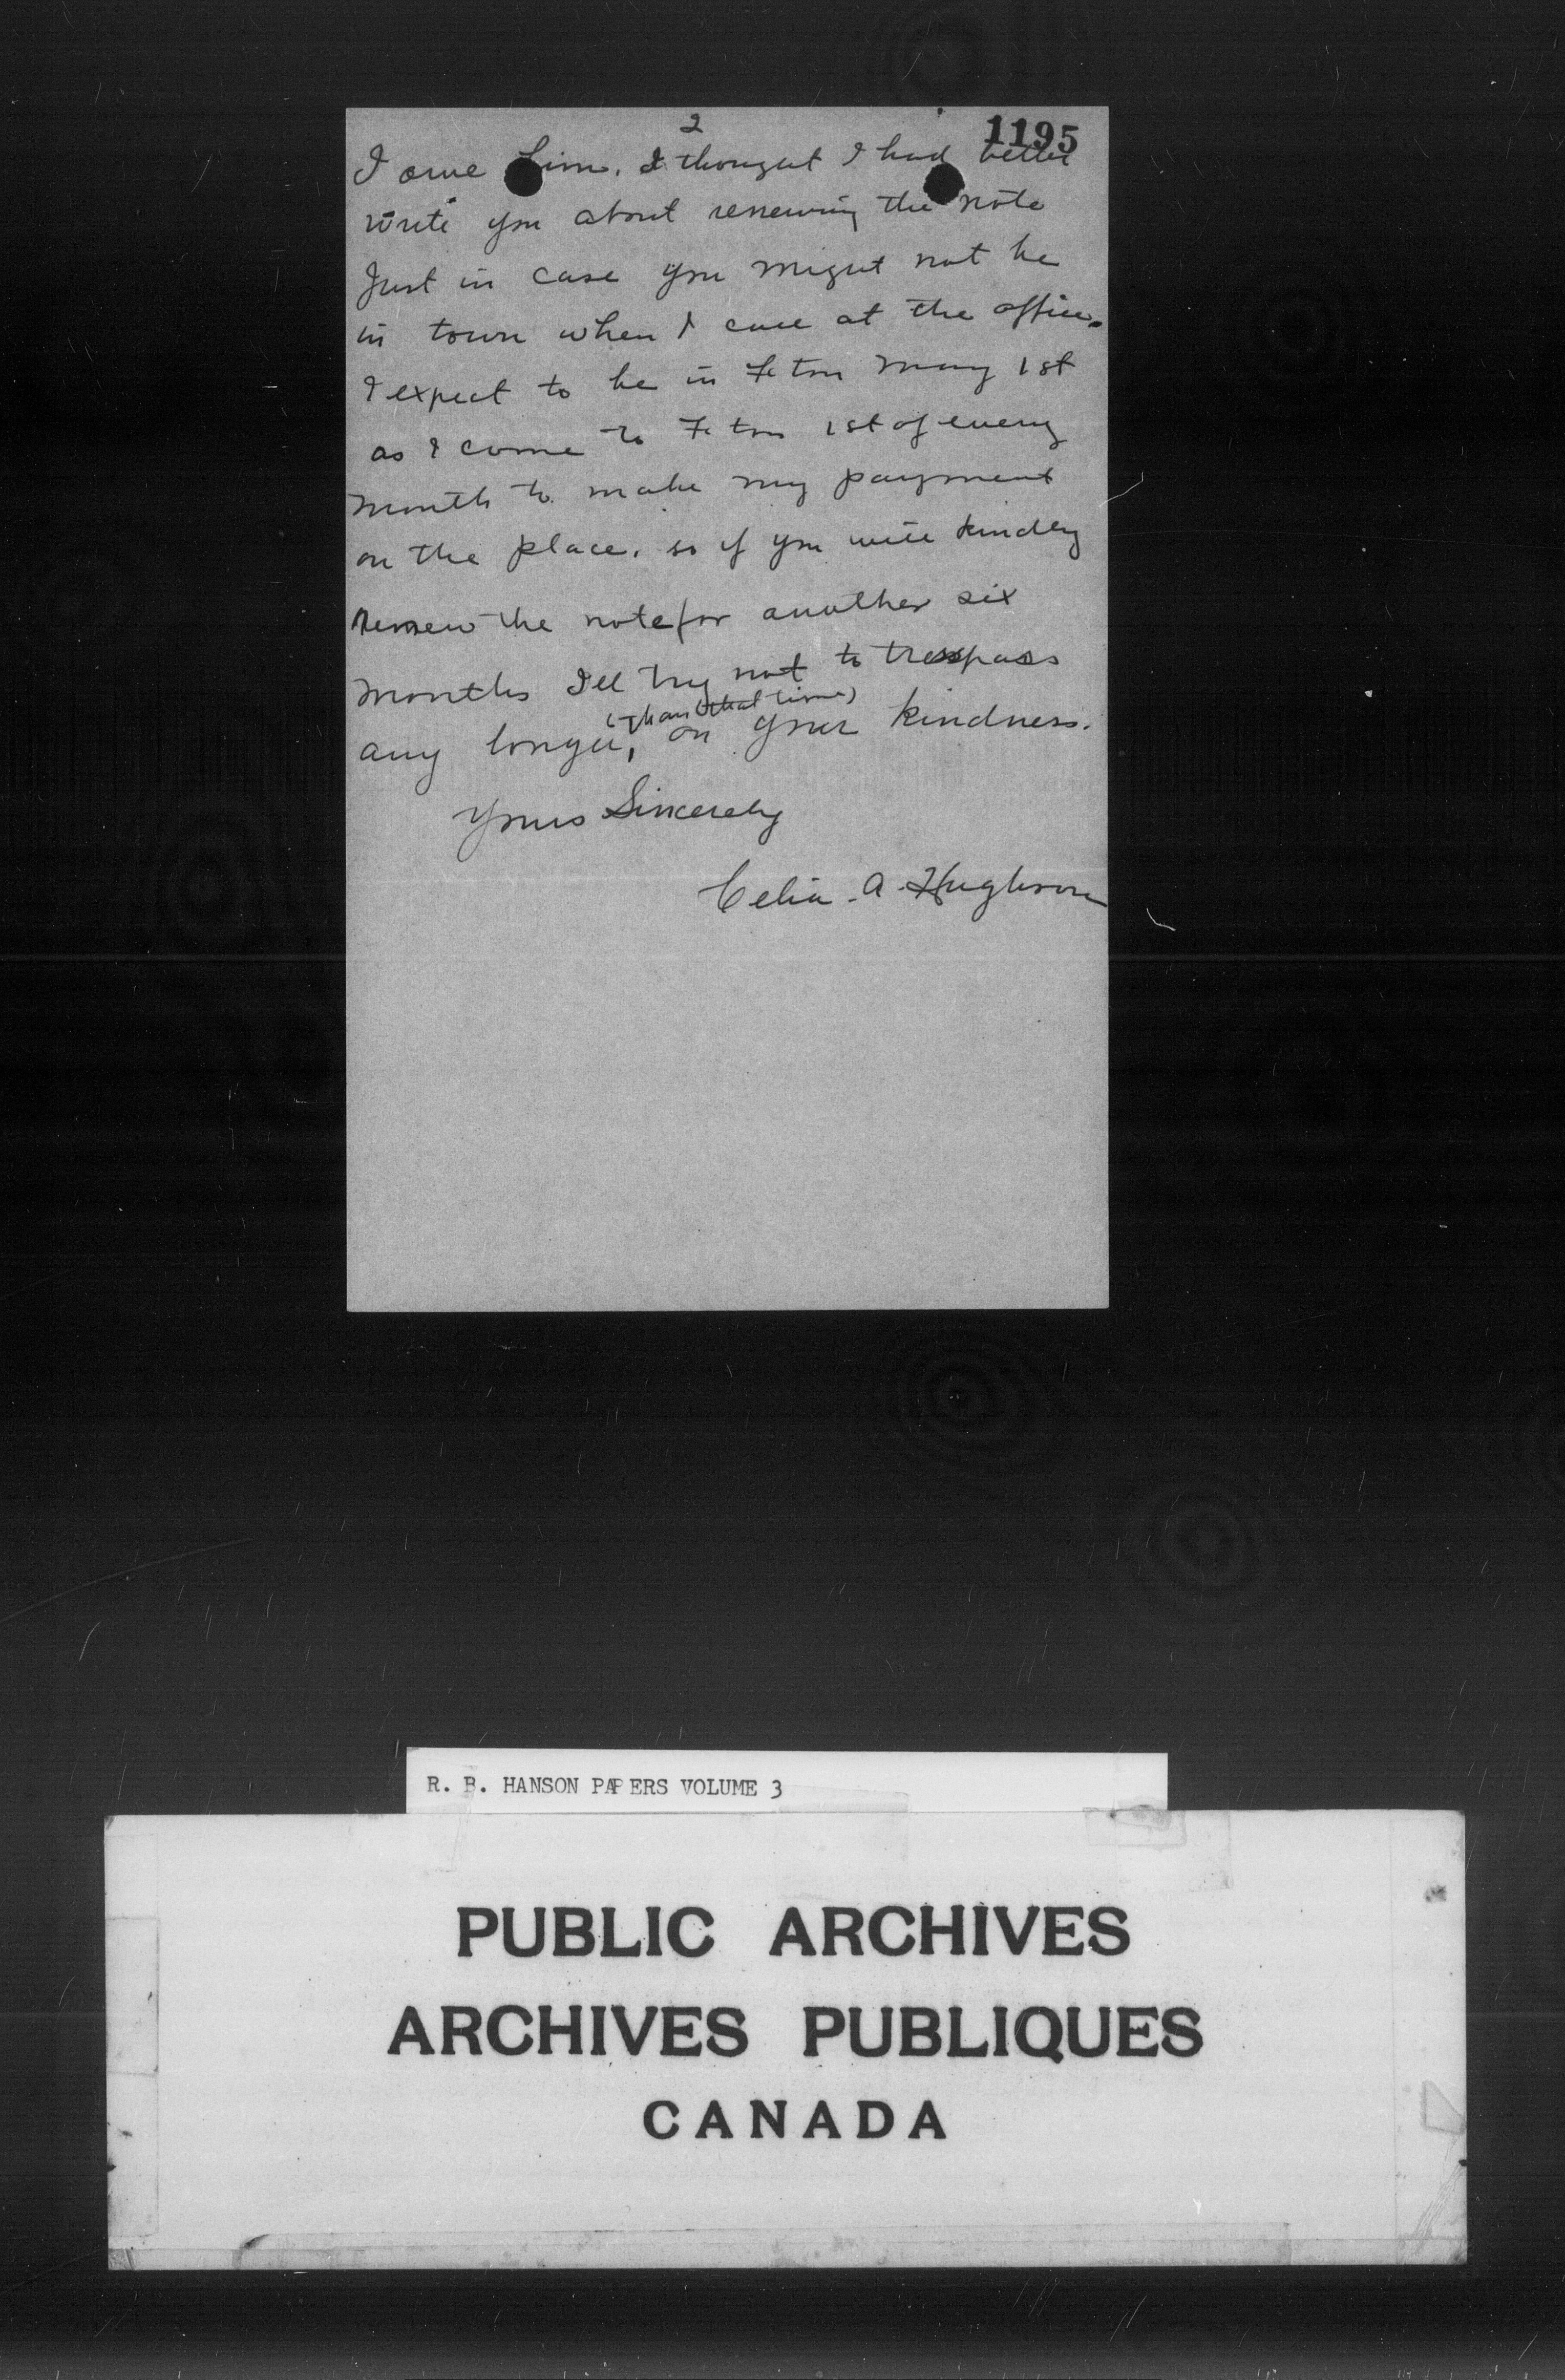 2
1195
I owe him. I thought I had better
write you about renewing the note
Just in case you might not be
in town when I call at the office.
I expect to be in F'ton May 1st
as I come to F'ton 1st of every
month to make my payment
on the place. so if you will kindly
renew the note for another six
months I'll try not to trespass
(than that time)
any longer, on your kindness.
Yours Sincerely
Celia. A. Hughson
R. B. HANSON PAPERS VOLUME 3
PUBLIC ARCHIVES
ARCHIVES PUBLIQUES
CANADA